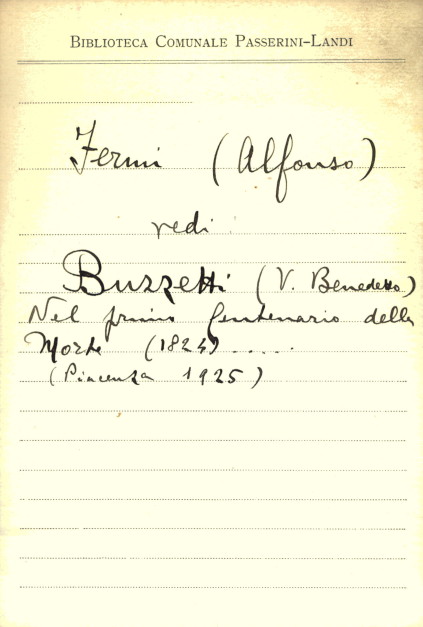 BIBLIOTECA COMUNALE PASSERINI-LANDI
Fermi (Alfonso)
vedi
Buzzetti (V. Benedetto)
Nel primo Centenario della
Morte (1824) .....
(Piacenza 1925)